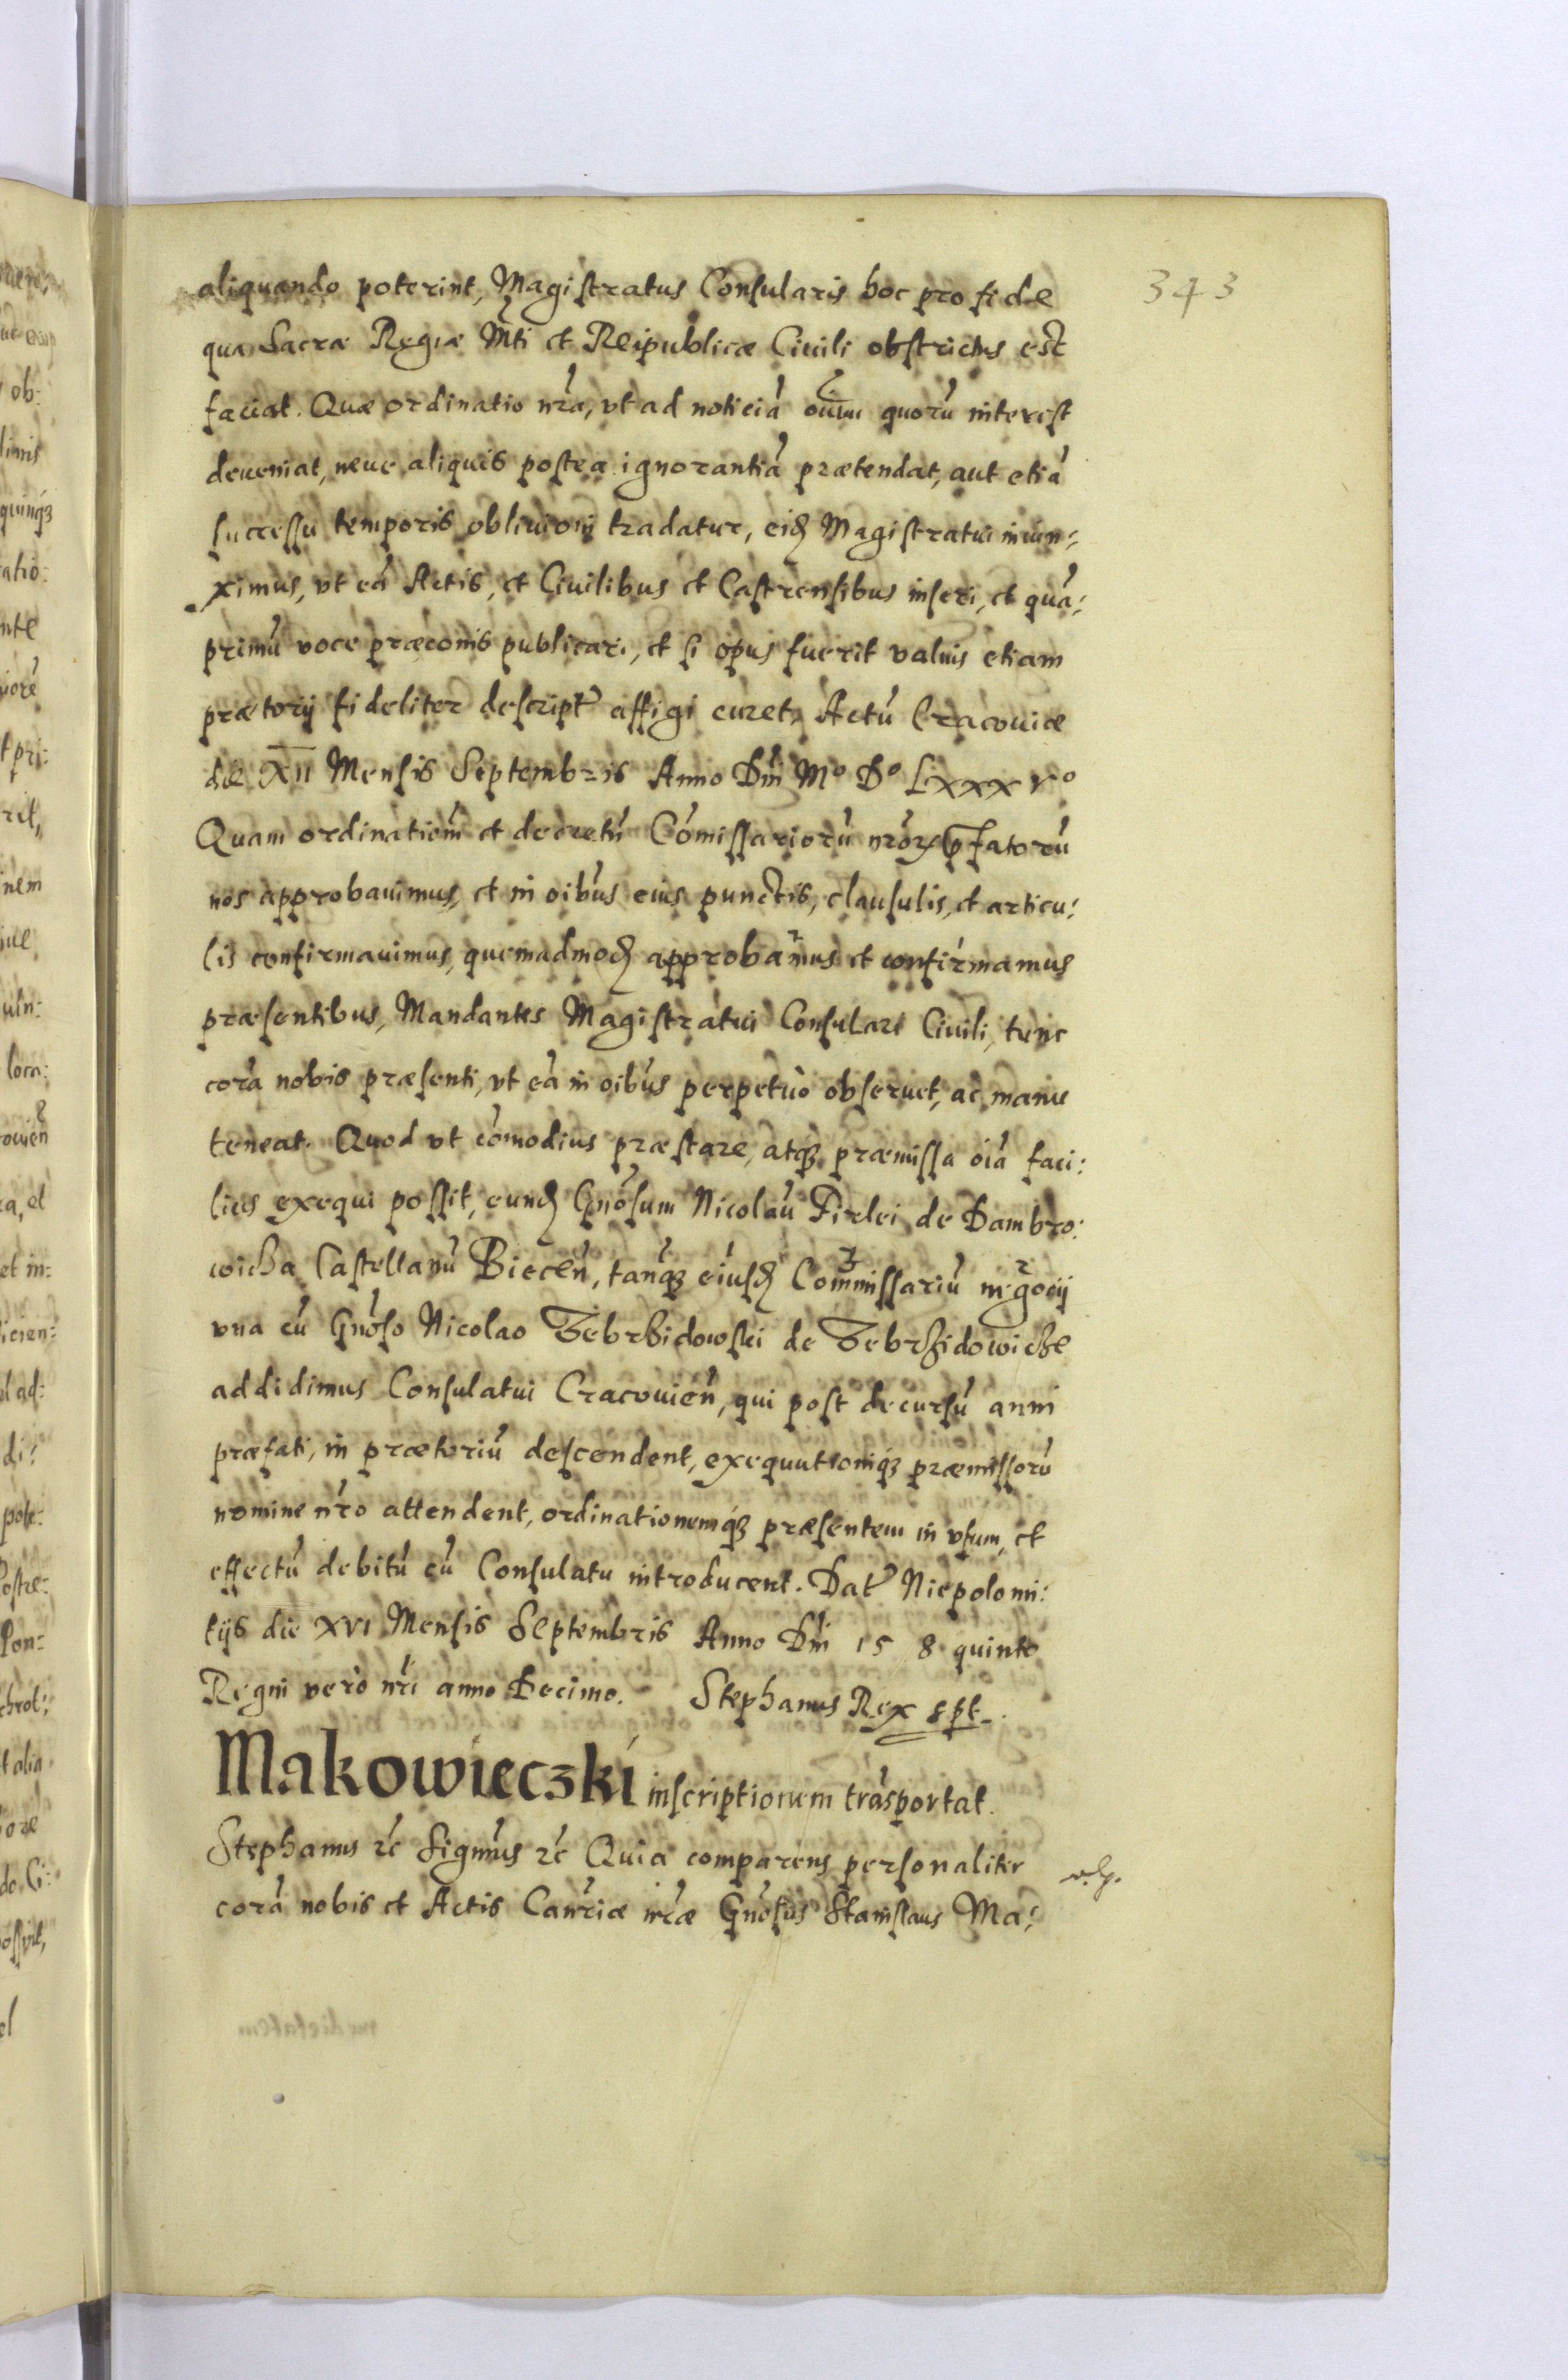 343
aliquando poterint, Magistratus Consularis hoc pro fide
qua Sacræ Regiæ Mti et Reipublicæ Civili obstrictus est
faciat. Quæ ordinatio nrã, vt ad noticiã oĩum quorũ interest
deveniat, neve aliquis postea ignorantiã prætendat, aut etiã
successu temporis oblivioni tradatur, eid Magistratui iniun:
ximus, vt eã Actis, et Civilibus et Castrensibus inseri, et quã:
primũ voce præconis publicari, et si opus fuerit valvis etiam
prætorij fideliter descript affigi curet, Actũ Cracoviæ
die XII Mensis Septembris Anno Dñi Mº Dº LXXX vº
Quam ordinatiem̃ et decretũ Cõmissariorũ nrõr pfatorũ
nos approbavimus, et in oibũs eius punctis, clausulis, et articu:
lis confirmavimus, quemadmod approbamus et confirmamus
præsentibus, Mandantes Magistratui Consulari Civili, tunc
corã nobis præsenti, vt eã in oibũs perpetuò observet, ac manu
teneat. Quod vt cõmodius præstare, atq præmissa oiã faci:
lius exequi possit, eund Gnõsum Nicolaũ Firlei de Dambro:
wicza Castellanũ Biecen̄, tanq̃ eiusd Commissariũ negocij
vna cũ Gnõso Nicolao Zebrzidowski de Zebrzidowicze
addidimus Consulatui Cracovien̄, qui post decursũ anni
præfati, in prætoriũ descendent, exequutioniq præmissorũ
nomine nr̃o attendent, ordinationemq præsentem in vsum, et
effectũ debitũ cũ Consulatu introducent. Dat Niepolomi:
tijs die XVI Mensis Septembris Anno Dñi 15 8 quinto
Regni verò nr̃i anno Decimo. Stephanus Rex spt.
Makowieczki inscriptionem trãsportat.
Stephanus rc̃ Signm̃us rc̃ Quia comparens personaliter
corã nobis et Actis Canr̃iæ nr̃æ Gnõsus Stanislaus Ma: